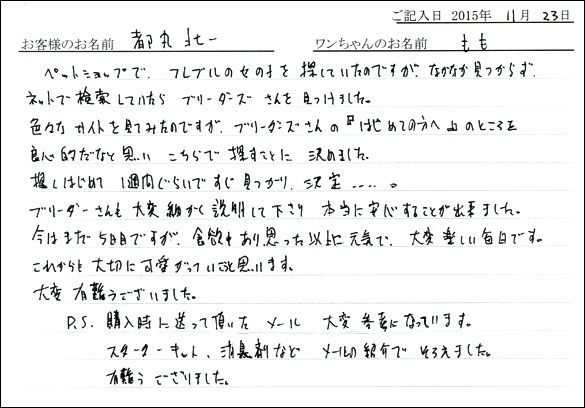 ご記入日 2015年 11月 23日
お客様のお名前 都丸 ワンちゃんのお名前 もも
ペットショップで、フレブルの女の子を探していたのですが、なかなか見つからず、
ネットで検索していたら ブリーダーズさんを見つけました。
色々な サイトを見てみたのですが、ブリーダーズさんの『はじめての方へ』のところを
良心的だなと思い こちらで探すことに 決めました。
探しはじめて 1週間ぐらいですぐ見つかり、決定……。
ブリーダーさんも 大変細かく説明して下さり 本当に安心することが出来ました。
今はまだ5日目ですが、食欲もあり思った以上に元気で、大変楽しい毎日です。
これからも大切に可愛がっていこうと思います。
大変有難うございました。
P.S. 購入時に送って頂いた メール 大変参考になっています。
スターターキット、消臭剤など メールの紹介で そろえました。
有難う ございました。